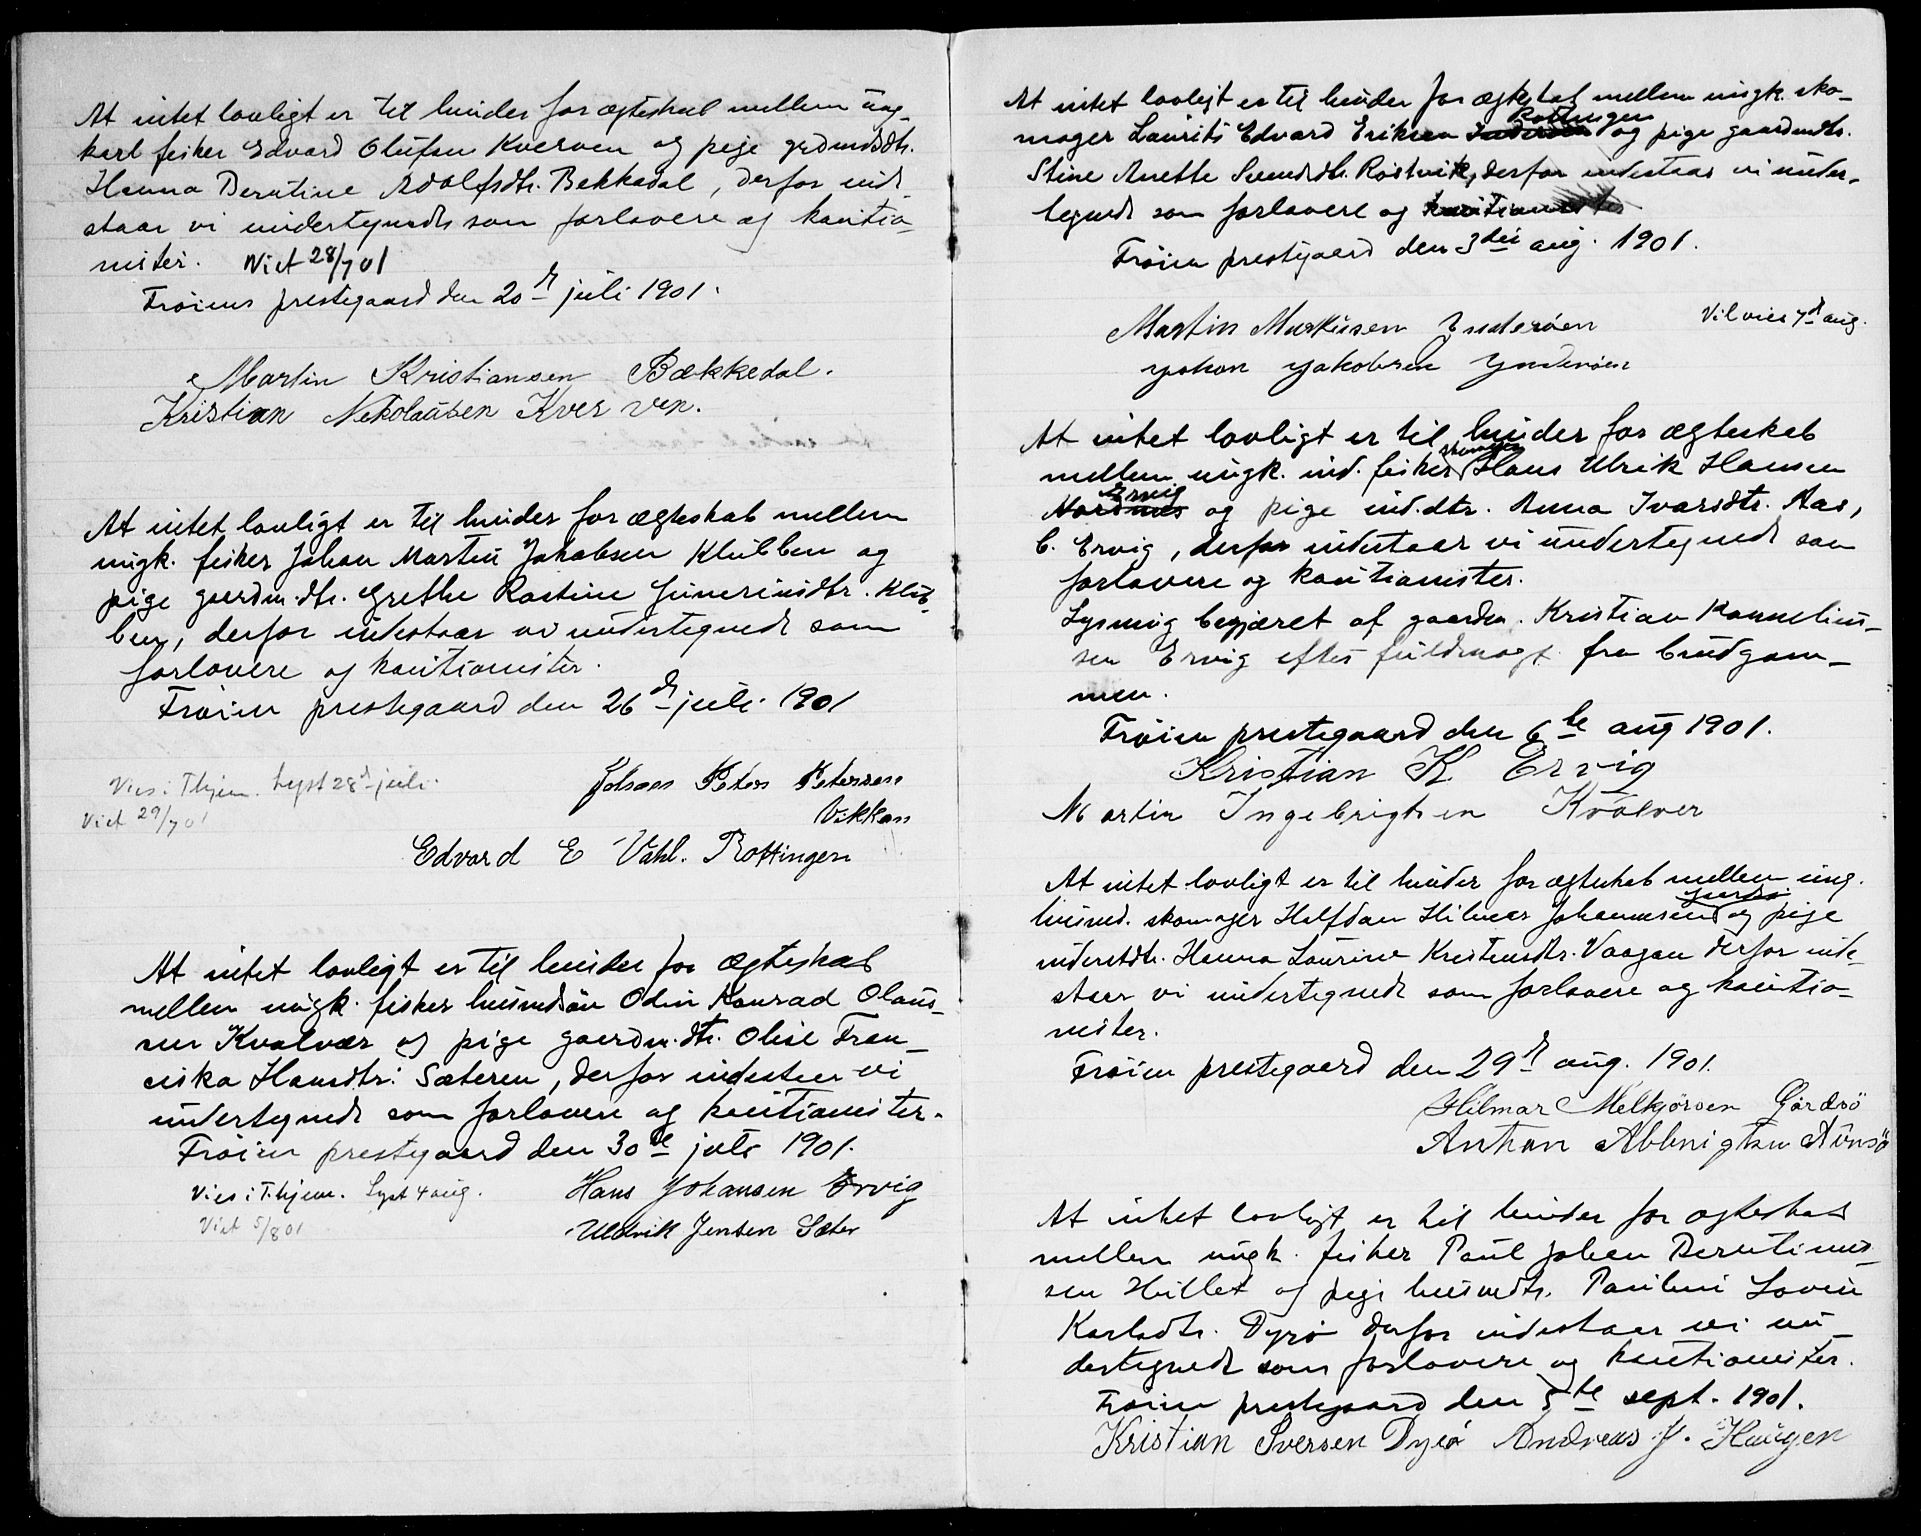 At intet lovligt er til hinder for ægteskab mellem ung-
karl fisker Edvard Olufsen Kverven og pige grdmdsdtr.
Hanna Berntine Adolfsdtr. Bekkedal, derfor ind
staar vi undertegnede som forlovere og kautio-
nister. Viet 28/7 01
Frøiens prestegaard den 20de juli 1901.
Martin Kristiansen Bækkedal.
Kristian Nekolausen Kverven.
At intet lovligt er til hinder for ægteskab mellem
ungk. fisker Johan Martin Jakobsen Klubben og
pige gaardm.dtr. Grethe Rastine Junerinsdtr. Klub-
ben, derfor indestaar vi undertegnede som
forlovere og kautionister.
Frøien prestegaard den 26de juli 1901
Vies i Thjem. Lyst 28de juli.
Viet 29/7 01
Johan Peter Petersen
Vikkan
Edvard E Vahl. Rottingen
At intet lovligt er til hinder for ægteskab
mellem ungk. fisker husmdsøn Odin Konrad Olaus-
sen Kvalvær og pige gaardm.dtr. Olise Fran-
siska Hansdtr. Sæteren, derfor indestaar vi
undertegnede som forlovere og kautionister.
Frøien prestegaard den 30te juli 1901.
Vies i T.hjem. Lyst 4 aug.
Viet 5/8 01
Hans Johansen Ervig
Uldrik Jensen Sæter
At intet lovligt er til hinder for ægteskab mellem ungk. sko-
Rottingen
mager Laurits Edvard Eriksen Inderøen og pige gaardmdtr.
Stine Anette Svendsdtr. Røstvik, derfor indestaar vi under-
tegnede som forlovere og kautionister
Frøien prestegaard den 3die aug. 1901.
Vil vies 7de aug.
Martin Markusen Inderøen
Johan Jakobsen Ynderøen
At intet lovligt er til hinder for ægteskab
mellem ungk. ind. fisker Hans Ulrik Hansen
Ervig
Nordnes og pige ind.dtr. Anna Ivarsdtr. Aas,
b. Ervig, derfor indestaar vi undertegnede som
forlovere og kautionister.
Lysning begjæret af gaardm. Kristian Kornelius-
sen Ervig efter fuldmagt fra brudgom-
men.
Frøien prestegaard den 6te aug 1901.
Kristian K Ervig
Martin Ingebrigtsen Kvalver
At intet lovligt er til hinder for ægteskab mellem ung.
husmd. skomager Halfdan Hilmar Johannesen og pige
inderstdtr. Hanna Laurine Kristensdtr. Vaagan derfor inde-
staar vi undertegnede som forlovere og kautio-
nister.
Frøien prestegaard den 29de aug. 1901.
Hilmar Melkjørsen Gårdsö
Anthon Albrigtsen Aunsö
At intet lovligt er til hinder for ægteskab
mellem ungk. fisker Paul Johan Berntinus-
sen Hullet og pige husmdtr. Pauline Lovise
Karlsdtr. Dyrø derfor indestaar vi un-
dertegnede som forlovere og kautionister.
Frøien prestegaard den 5te sept. 1901.
Kristian Iversen Dyrø Andreas J. Haugen